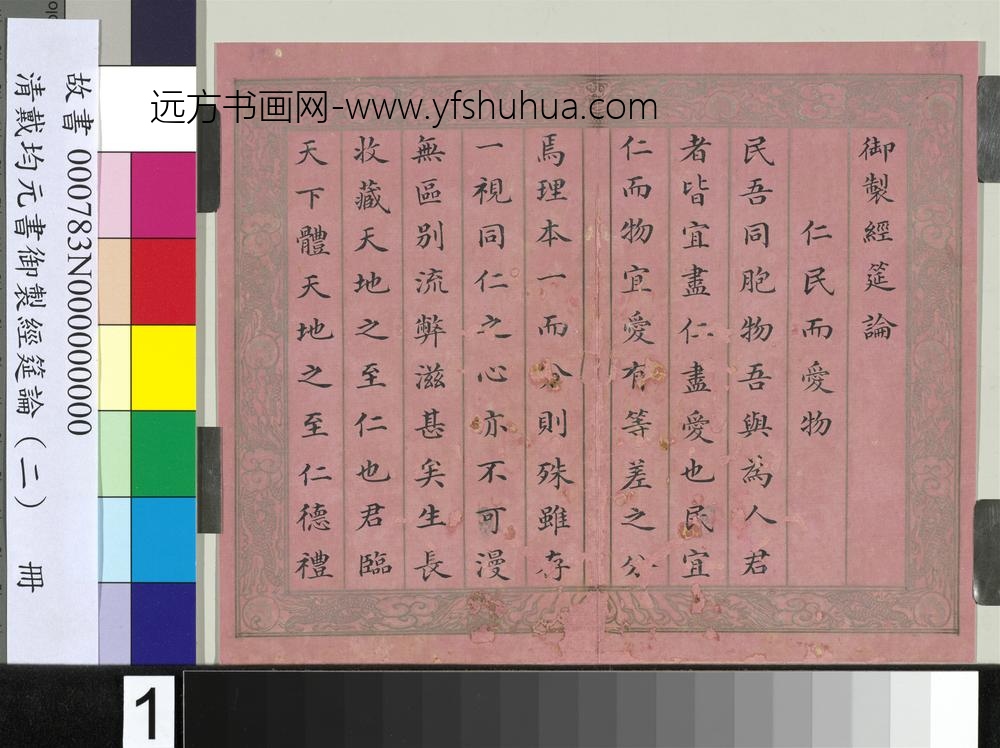 御製經筵論
仁民而愛物
民吾同胞物吾與為人君
者皆宜盡仁盡愛也民宜
仁而物宜愛有等差之分
焉理本一而分則殊雖存
一視同仁之心亦不可漫
無區別流弊滋甚矣生長
收藏天地之至仁也君臨
天下體天地之至仁德禮
远方书画网-www.yfshuhua.com
故書 000783N000000000
清戴均元書御製經筵論(二) 冊
1